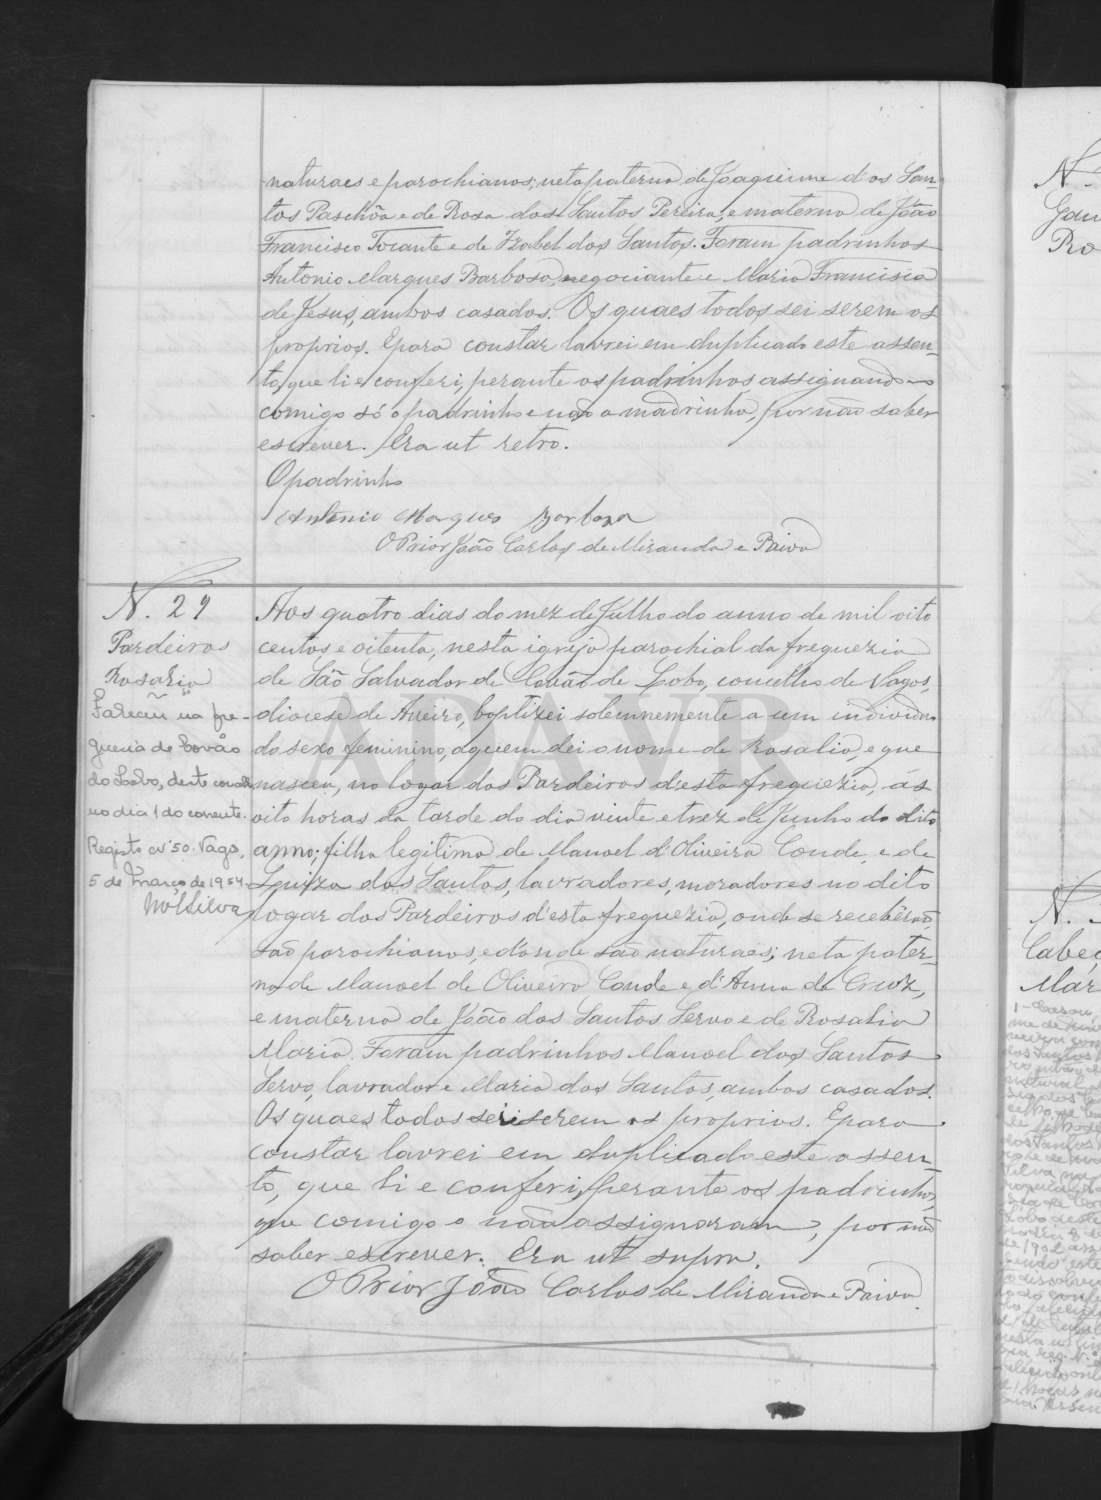 naturaes e parochianos; neta paterna de Joaquim dos San-
tos Paschôa e de Rosa dos Santos Pereira, e materna de João
Francisco Tocante e de Izabel dos Santos. Foram padrinhos
Antonio Marques Barbosa, negociante e Maria Francisca
de Jesus, ambos casados. Os quaes todos sei serem os
proprios. E para constar lavrei em duplicado este assen-
to, que li e conferi, perante os padrinhos assignando
comigo só o padrinho e não a madrinha, por não saber
escrever. Era ut retro.
O padrinho
Antonio Marques Barboza
O Prior João Carlos de Miranda e Paiva
N. 29
Pardeiros
Rosalia
Faleceu na fre-
guesia de Covão
do Lobo, deste concelho
no dia 1 do corrente.
Registo nº 50. Vagos,
5 de Março de 1954.
Aos quatro dias do mez de Julho do anno de mil oito
centos e oitenta, nesta igreja parochial da freguezia
de São Salvador de Covão de Lobo, concelho de Vagos,
diocese de Aveiro, baptizei solemnemente a um individuo
do sexo feminino, a quem dei o nome de Rosalia, e que
nasceu, no logar dos Pardeiros d'esta freguezia, ás
oito horas da tarde do dia vinte e trez de Junho do dito
anno; filha legitima de Manoel d'Oliveira Conde, e de
Luiza dos Santos, lavradores, moradores no dito
logar dos Pardeiros d'esta freguezia, onde se recebêrão,
são parochianos, e d'onde são naturaes; neta pater-
na de Manoel de Oliveira Conde e d'Anna da Cruz,
e materna de João dos Santos Servo e de Rosalia
Maria. Foram padrinhos Manoel dos Santos
Servo, lavrador e Maria dos Santos, ambos casados.
Os quaes todos sei serem os proprios. E para
constar lavrei em duplicado este assen-
to, que li e conferi, perante os padrinhos,
que comigo não assignaram, por não
saber escrever. Era ut supra.
O Prior João Carlos de Miranda e Paiva.
ADAVR